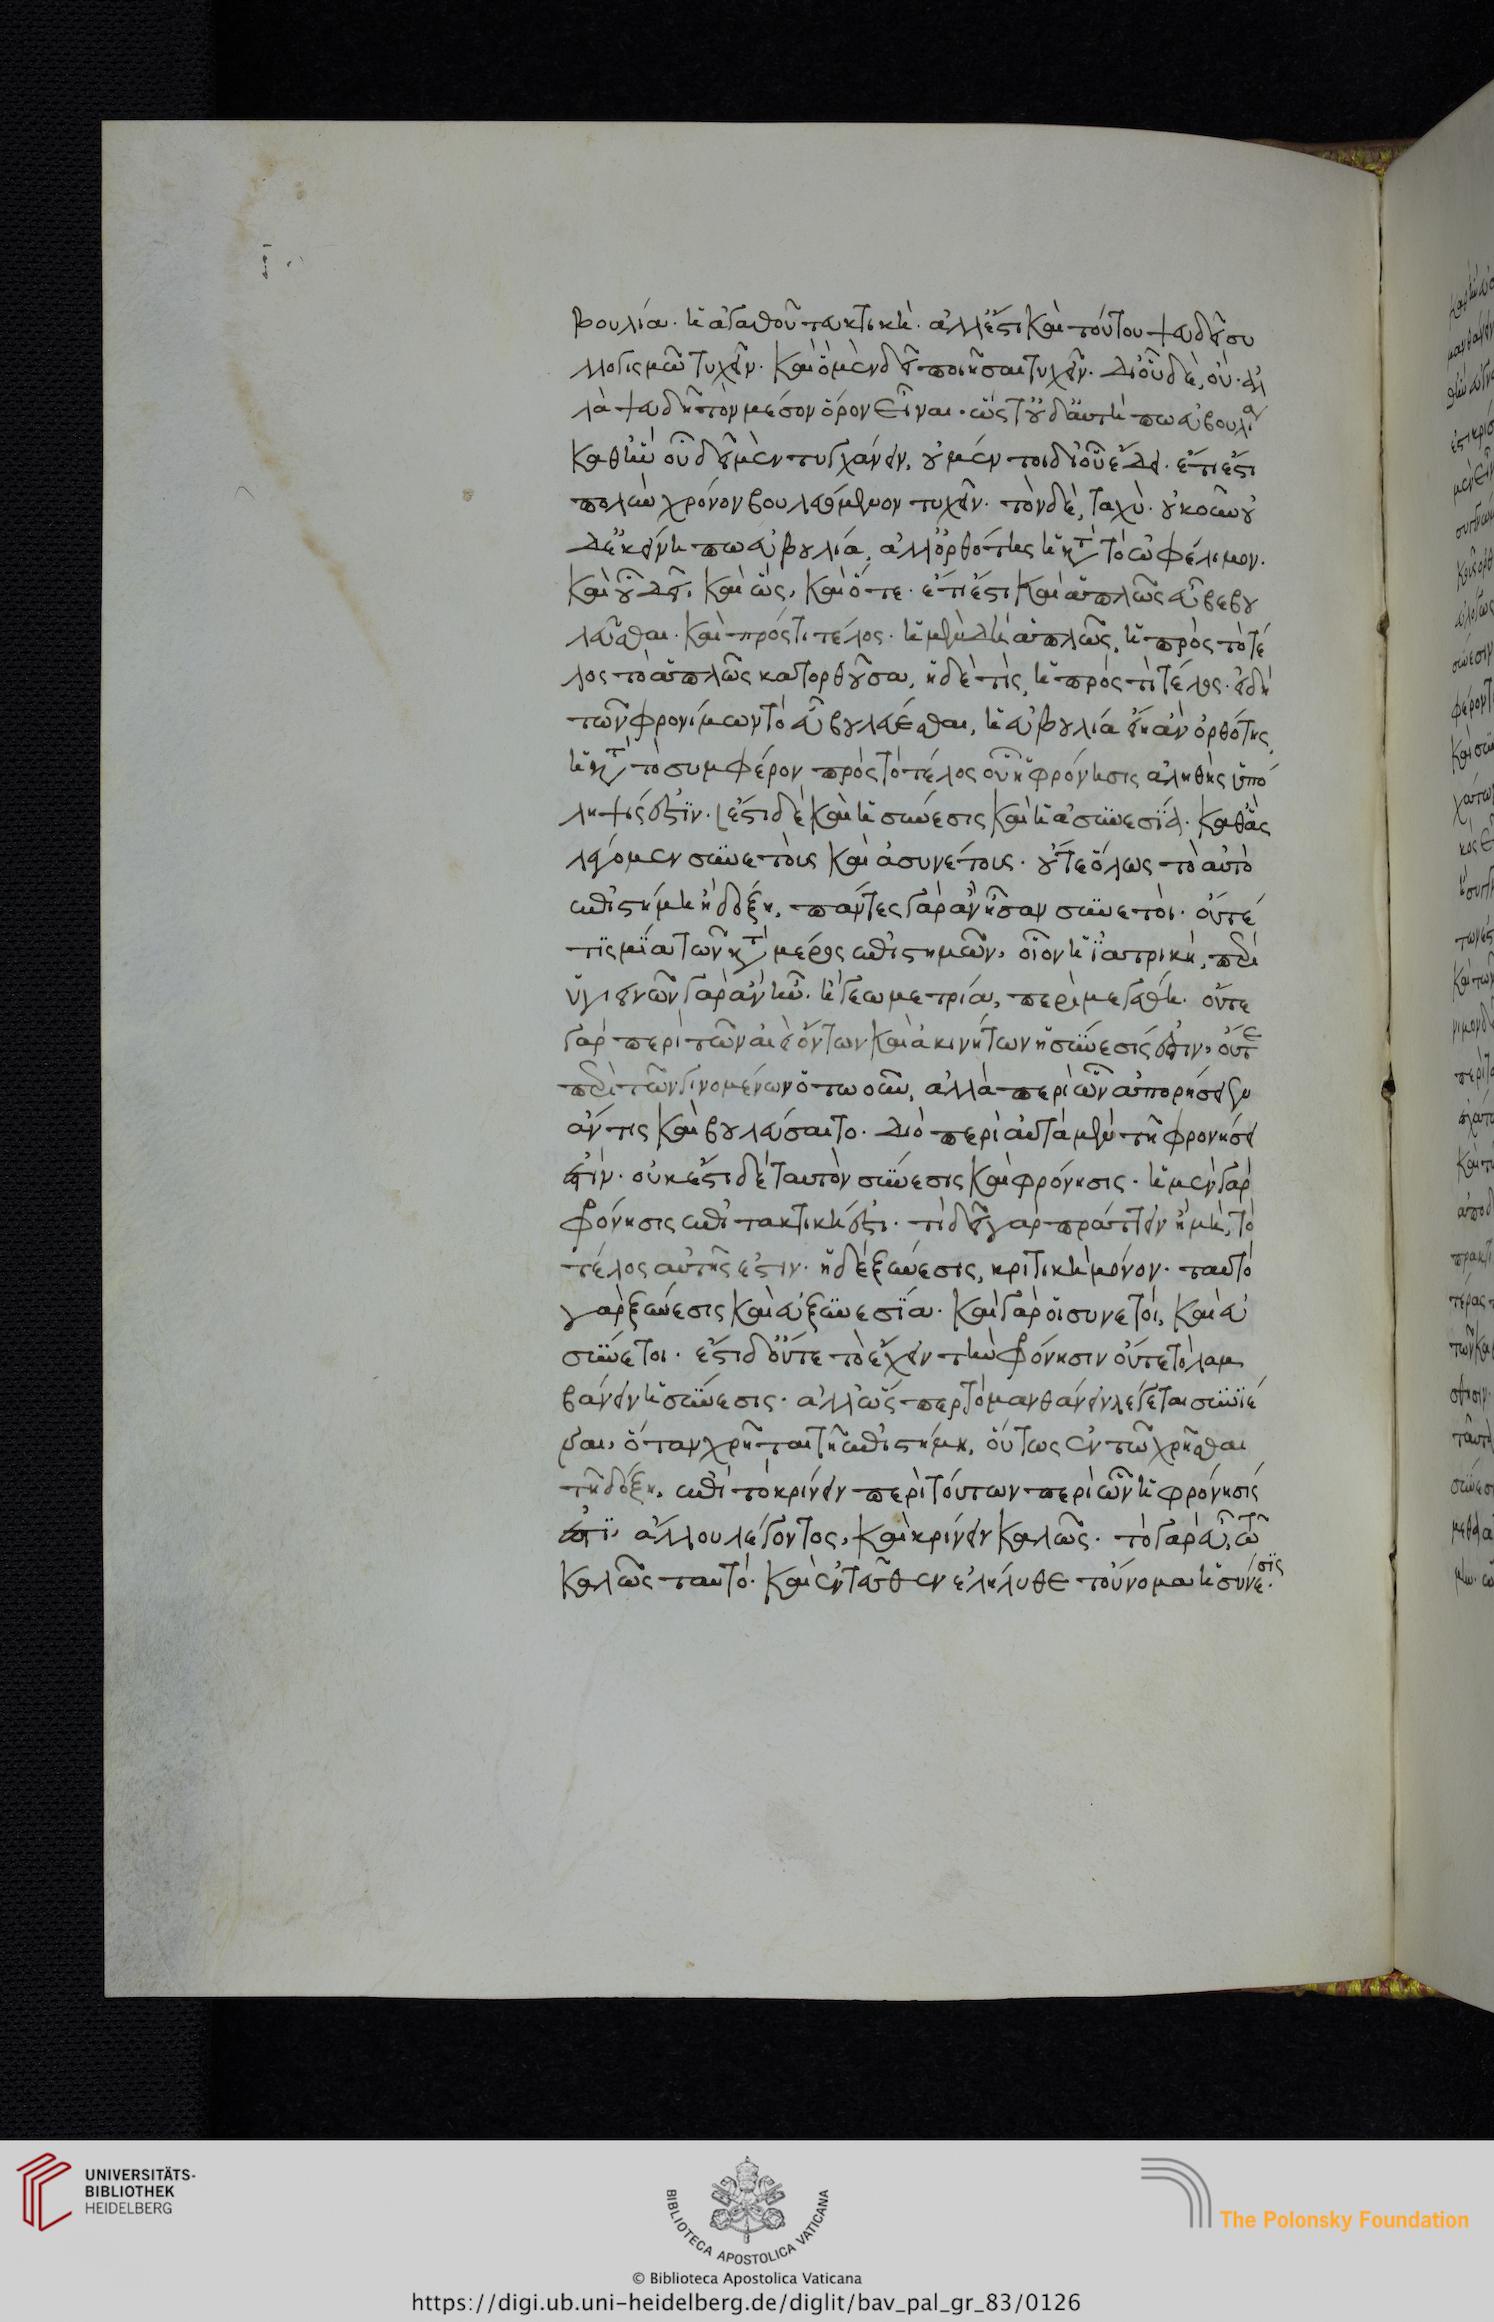 βουλία· ἡ ἀγαθοῦ τακτική· ἀλλ' ἔστι καὶ τούτου ψευδεῖ συ
λλογισμῶ τυχεῖν· καὶ ὃ μὲν δεῖ ποιῆσαι τυχεῖν· δι' οὗ δὲ, οὐ· ἀλ
λὰ ψευδῆ τὸν μέσον ὅρον εἶναι· ὥστ' οὐδ' αὕτη πω εὐβουλία
καθ' ἣν οὗ δεῖ μὲν τυγχάνειν, οὐ μέν τοι δι' οὗ ἔδει· ἔτι ἔστι
πολὺν χρόνον βουλευόμενον τυχεῖν· τὸν δὲ, ταχύ· οὐκοῦν οὐ
δ' ἐκείνη πω εὐβουλία, ἀλλ' ὀρθότης ἡ κατὰ τὸ ὠφέλιμον·
καὶ οὗ δεῖ, καὶ ὥς, καὶ ὅτε· ἔτι ἔστι καὶ ἁπλῶς εὖ βεβου
λεῦσθαι· καὶ πρός τι τέλος· ἡ μὲν δὴ ἁπλῶς, ἡ πρὸς τὸ τέ
λος τὸ ἁπλῶς κατορθοῦσα, ἡ δὲ τὶς, ἡ πρός τι τέλος· εἰ δὴ
τῶν φρονίμων τὸ εὖ βουλεύεσθαι, ἡ εὐβουλία εἴη ἂν ὀρθότης
ἡ κατὰ τὸ συμφέρον πρὸς τὸ τέλος οὗ ἡ φρόνησις ἀληθὴς ὑπό
ληψίς ἐστιν· ἔστι δὲ καὶ ἡ σύνεσις καὶ ἡ ἀσυνεσία· καθ' ἃς
λέγομεν συνετοὺς καὶ ἀσυνέτους· οὔτε ὅλως τὸ αὐτὸ
ἐπιστήμη ἢ δόξη, πάντες γὰρ ἂν ἦσαν συνετοί· οὔτέ
τις μία τῶν κατὰ μέρος ἐπιστημῶν, οἷον ἡ ἰατρικὴ, περὶ
ὑγιεινῶν γὰρ ἂν ἦν· ἡ γεωμετρία, περὶ μεγέθη· οὔτε
γὰρ περὶ τῶν ἀεὶ ὄντων καὶ ἀκινήτων ἡ σύνεσίς ἐστιν, οὔτε
περὶ τῶν γινομένων ὁτωοῦν, ἀλλὰ περὶ ὧν ἀπορήσειεν
ἄν τις καὶ βουλεύσαιτο· διὸ περὶ αὐτὰ μὲν τῆ φρονήσει
ἐστίν· οὐκ ἔστι δὲ ταυτὸν σύνεσις καὶ φρόνησις· ἡ μὲν γὰρ
φρόνησις ἐπιτακτική ἐστι· τί δεῖ γὰρ πράττειν ἢ μὴ, τὸ
τέλος αὐτῆς ἐστιν· ἡ δὲ ξύνεσις, κριτικὴ μόνον· ταυτὸ
γὰρ ξύνεσις καὶ εὐξυνεσία· καὶ γὰρ οἱ συνετοί, καὶ εὐ
σύνετοι· ἔστι δ' οὔτε τὸ ἔχειν τὴν φρόνησιν οὔτε τὸ λαμ
βάνειν ἡ σύνεσις· ἀλλ' ὥσπερ τὸ μανθάνειν λέγεται συνιέ
ναι, ὅταν χρῆται τῆ ἐπιστήμη, οὕτως ἐν τῶ χρῆσθαι
τῆ δόξη, ἐπὶ τὸ κρίνειν περὶ τούτων περὶ ὧν ἡ φρόνησίς
ἐστι, ἄλλου λέγοντος, καὶ κρίνειν καλῶς· τὸ γὰρ εὖ, τῶ
καλῶς ταυτό· καὶ ἐντεῦθεν ἐλήλυθε τοὔνομα ἡ σύνεσις·
UNIVERSITÄTS-
BIBLIOTHEK
HEIDELBERG
BIBLIOTECA APOSTOLICA VATICANA
The Polonsky Foundation
© Biblioteca Apostolica Vaticana
https://digi.ub.uni-heidelberg.de/diglit/bav_pal_gr_83/0126